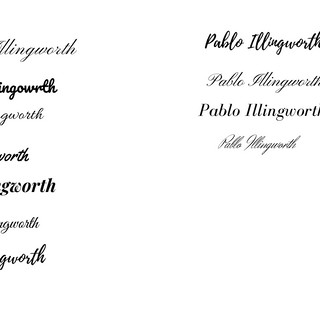 Illingworth
ingowrth
gworth
orth
gworth
ngworth
gworth
Pablo Illingworth
Pablo Illingworth
Pablo Illingworth
Pablo Illingworth